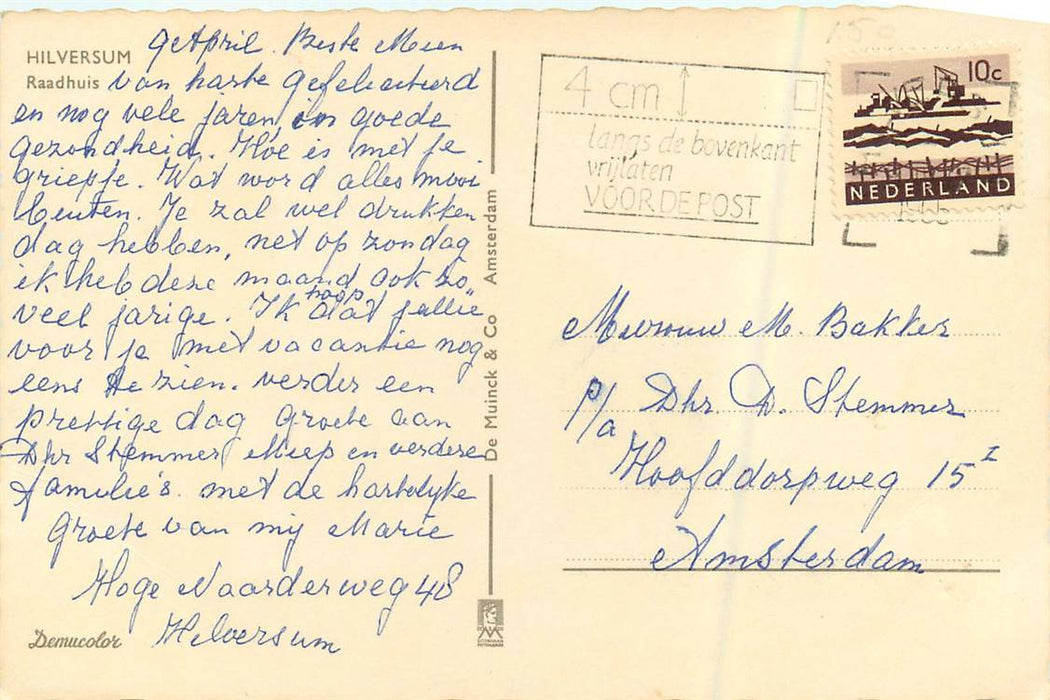 HILVERSUM
Raadhuis
9 April. Beste Meen
van harte gefeliciteerd
en nog vele jaren in goede
gezondheid. Hoe is met je
griepje. Wat word alles mooi
buiten. Je zal wel drukken
dag hebben, net op zondag
ik heb deze maand ook zo„
veel jarige. Ik hoop dat jullie
voor je met vacantie nog
eens te zien. verder een
prettige dag groete aan
Dhr Stemmer Miep en verdere
familie's. met de hartelijke
groete van mij Marie
Hoge Naarderweg 48
Hilversum
Demucolor
De Muinck & Co Amsterdam
4 cm
langs de bovenkant
vrijlaten
VÓÓR DE POST
10c
NEDERLAND
Mevrouw M. Bakker
p/a Dhr. D. Stemmer
Hoofddorpweg 15 I
Amsterdam